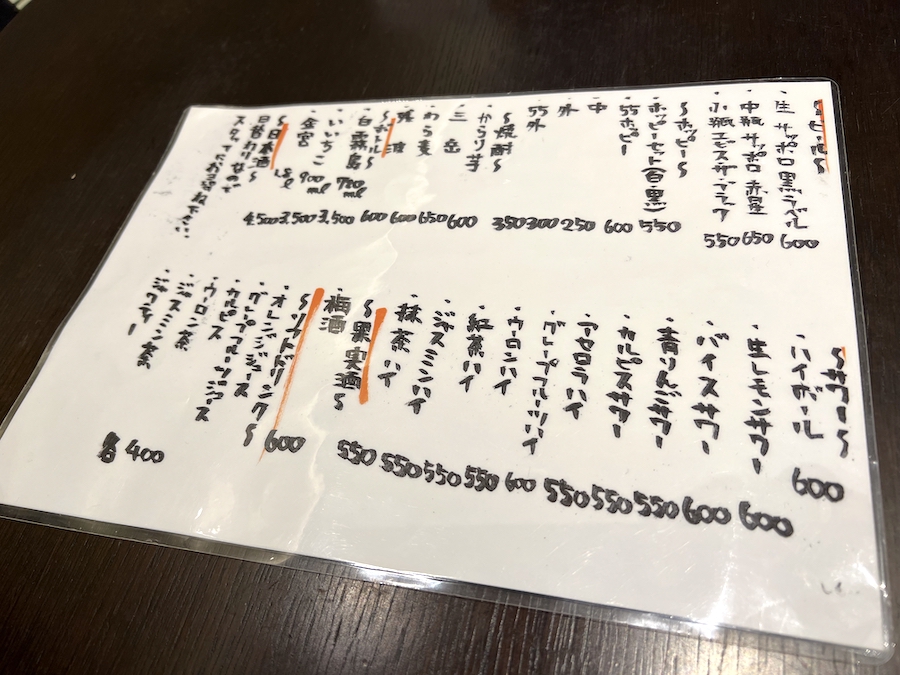 ・生 サッポロ黒ラベル 600
・中瓶 サッポロ赤星 650
・小瓶 エビス ブラック 550
〜ホッピー〜
・ホッピーセット(白・黒) 550
・55ホッピー 600
・中 250
・外 300
・55外 350
〜焼酎〜
・からり芋 600
・三岳 650
・わら麦 600
・残波 600
〜ボトル〜
・白霧島 720ml 3,500
・いいちこ 900ml 3,500
・金宮 1.8l 4,500
〜日本酒〜
日替わりなので
スタッフにお尋ね下さい。
〜サワー〜
・ハイボール 600
・生レモンサワー 600
・バイスサワー 600
・青りんごサワー 550
・カルピスサワー 550
・アセロラハイ 550
・グレープフルーツハイ 600
・ウーロンハイ 550
・紅茶ハイ 550
・ジャスミンハイ 550
・抹茶ハイ 550
〜果実酒〜
・梅酒 600
〜ソフトドリンク〜
・オレンジジュース
・グレープフルーツジュース
・カルピス
・ウーロン茶
・ジャスミン茶
・ジンジャー
各400